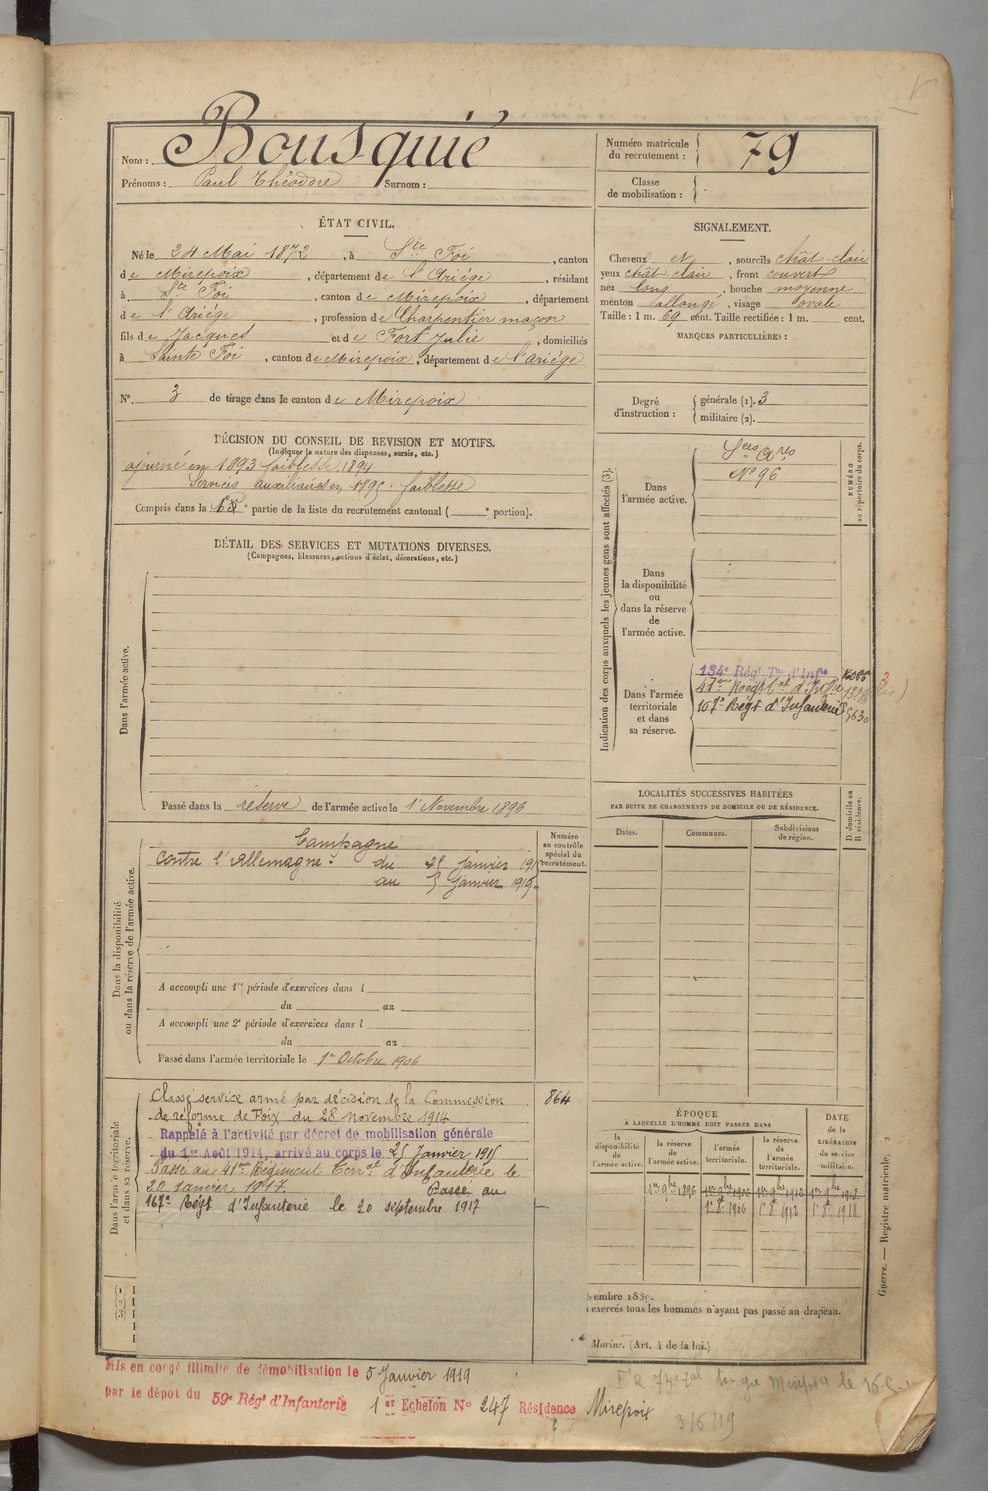 Nom : Bousquié
Prénoms : Paul Théodore Surnom :
Numéro matricule du recrutement : 79
Classe de mobilisation :
ÉTAT CIVIL.
Né le 24 Mai 1872, à Ste Foi, canton
de Mirepoix, département de l'Ariège, résidant
à Ste Foi, canton de Mirepoix, département
de l'Ariège, profession de Charpentier maçon
fils de Jacques et de Fort Julie, domiciliés
à Sainte Foi, canton de Mirepoix, département de l'ariège
N° 3 de tirage dans le canton de Mirepoix
SIGNALEMENT.
Cheveux et, sourcils chât-clair
yeux chât clair, front couvert
nez long, bouche moyenne
menton allongé, visage ovale
Taille : 1 m. 69 cent. Taille rectifiée : 1 m. cent.
MARQUES PARTICULIÈRES :
Degré d'instruction : générale (1). 3
militaire (2).
DÉCISION DU CONSEIL DE REVISION ET MOTIFS.
(Indiquer la nature des dispenses, sursis, etc.)
ajourné en 1893 faiblesse, 1894
Services auxiliaires en 1895. faiblesse
Compris dans la partie de la liste du recrutement cantonal ( ° portion).
DÉTAIL DES SERVICES ET MUTATIONS DIVERSES.
(Campagnes, blessures, actions d'éclat, décorations, etc.)
Dans l'armée active.
Passé dans la réserve de l'armée active le 1 Novembre 1896
Indication des corps auxquels les jeunes gens sont affectés (3).
NUMÉRO au répertoire du corps.
Dans l'armée active.
Sces Ares
N° 96
Dans la disponibilité ou dans la réserve de l'armée active.
Dans l'armée territoriale et dans sa réserve.
134e Régt Tal d'Infie
41me Regt tal d'Infie
167e Regt d'Infanterie 5630
LOCALITÉS SUCCESSIVES HABITÉES
PAR SUITE DE CHANGEMENTS DE DOMICILE OU DE RÉSIDENCE.
Dates. Communes. Subdivisions de région. D domicile ou R résidence.
Dans la disponibilité ou dans la réserve de l'armée active.
Numéro au contrôle spécial du recrutement.
Campagne
contre l'Allemagne : du 25 janvier 1915
au 5 janvier 1919
A accompli une 1re période d'exercices dans l
du au
A accompli une 2e période d'exercices dans l
du au
Passé dans l'armée territoriale le 1er Octobre 1906
Dans l'armée territoriale et dans sa réserve.
Classé service armé par décision de la Commission 864
de réforme de Foix du 28 novembre 1914
Rappelé à l'activité par décret de mobilisation générale
du 1er Août 1914, arrivé au corps le 25 janvier 1915
Passé au 41me Régiment Terral d'Infanterie le
20 Janvier 1917. Passé au
167e Régt d'Infanterie le 20 septembre 1917
ÉPOQUE
À LAQUELLE L'HOMME DOIT PASSER DANS
DATE de la LIBÉRATION du service militaire.
la disponibilité de l'armée active. la réserve de l'armée active. l'armée territoriale. la réserve de l'armée territoriale.
1er 9bre 1896 1er 9bre 1906 1er 9bre 1912 1er 9bre 1918
1er 8e 1906 1er 8e 1912 1er 8e 1918
(1)
(2)
(3)
exercés tous les hommes n'ayant pas passé au drapeau.
Marine. (Art. 4 de la loi.)
Guerre. — Registre matricule. 2
Mis en congé illimité de démobilisation le 5 Janvier 1919
par le dépôt du 59e Régt d'Infanterie 1er Echelon N° 247 Résidence Mirepoix
3/6/19